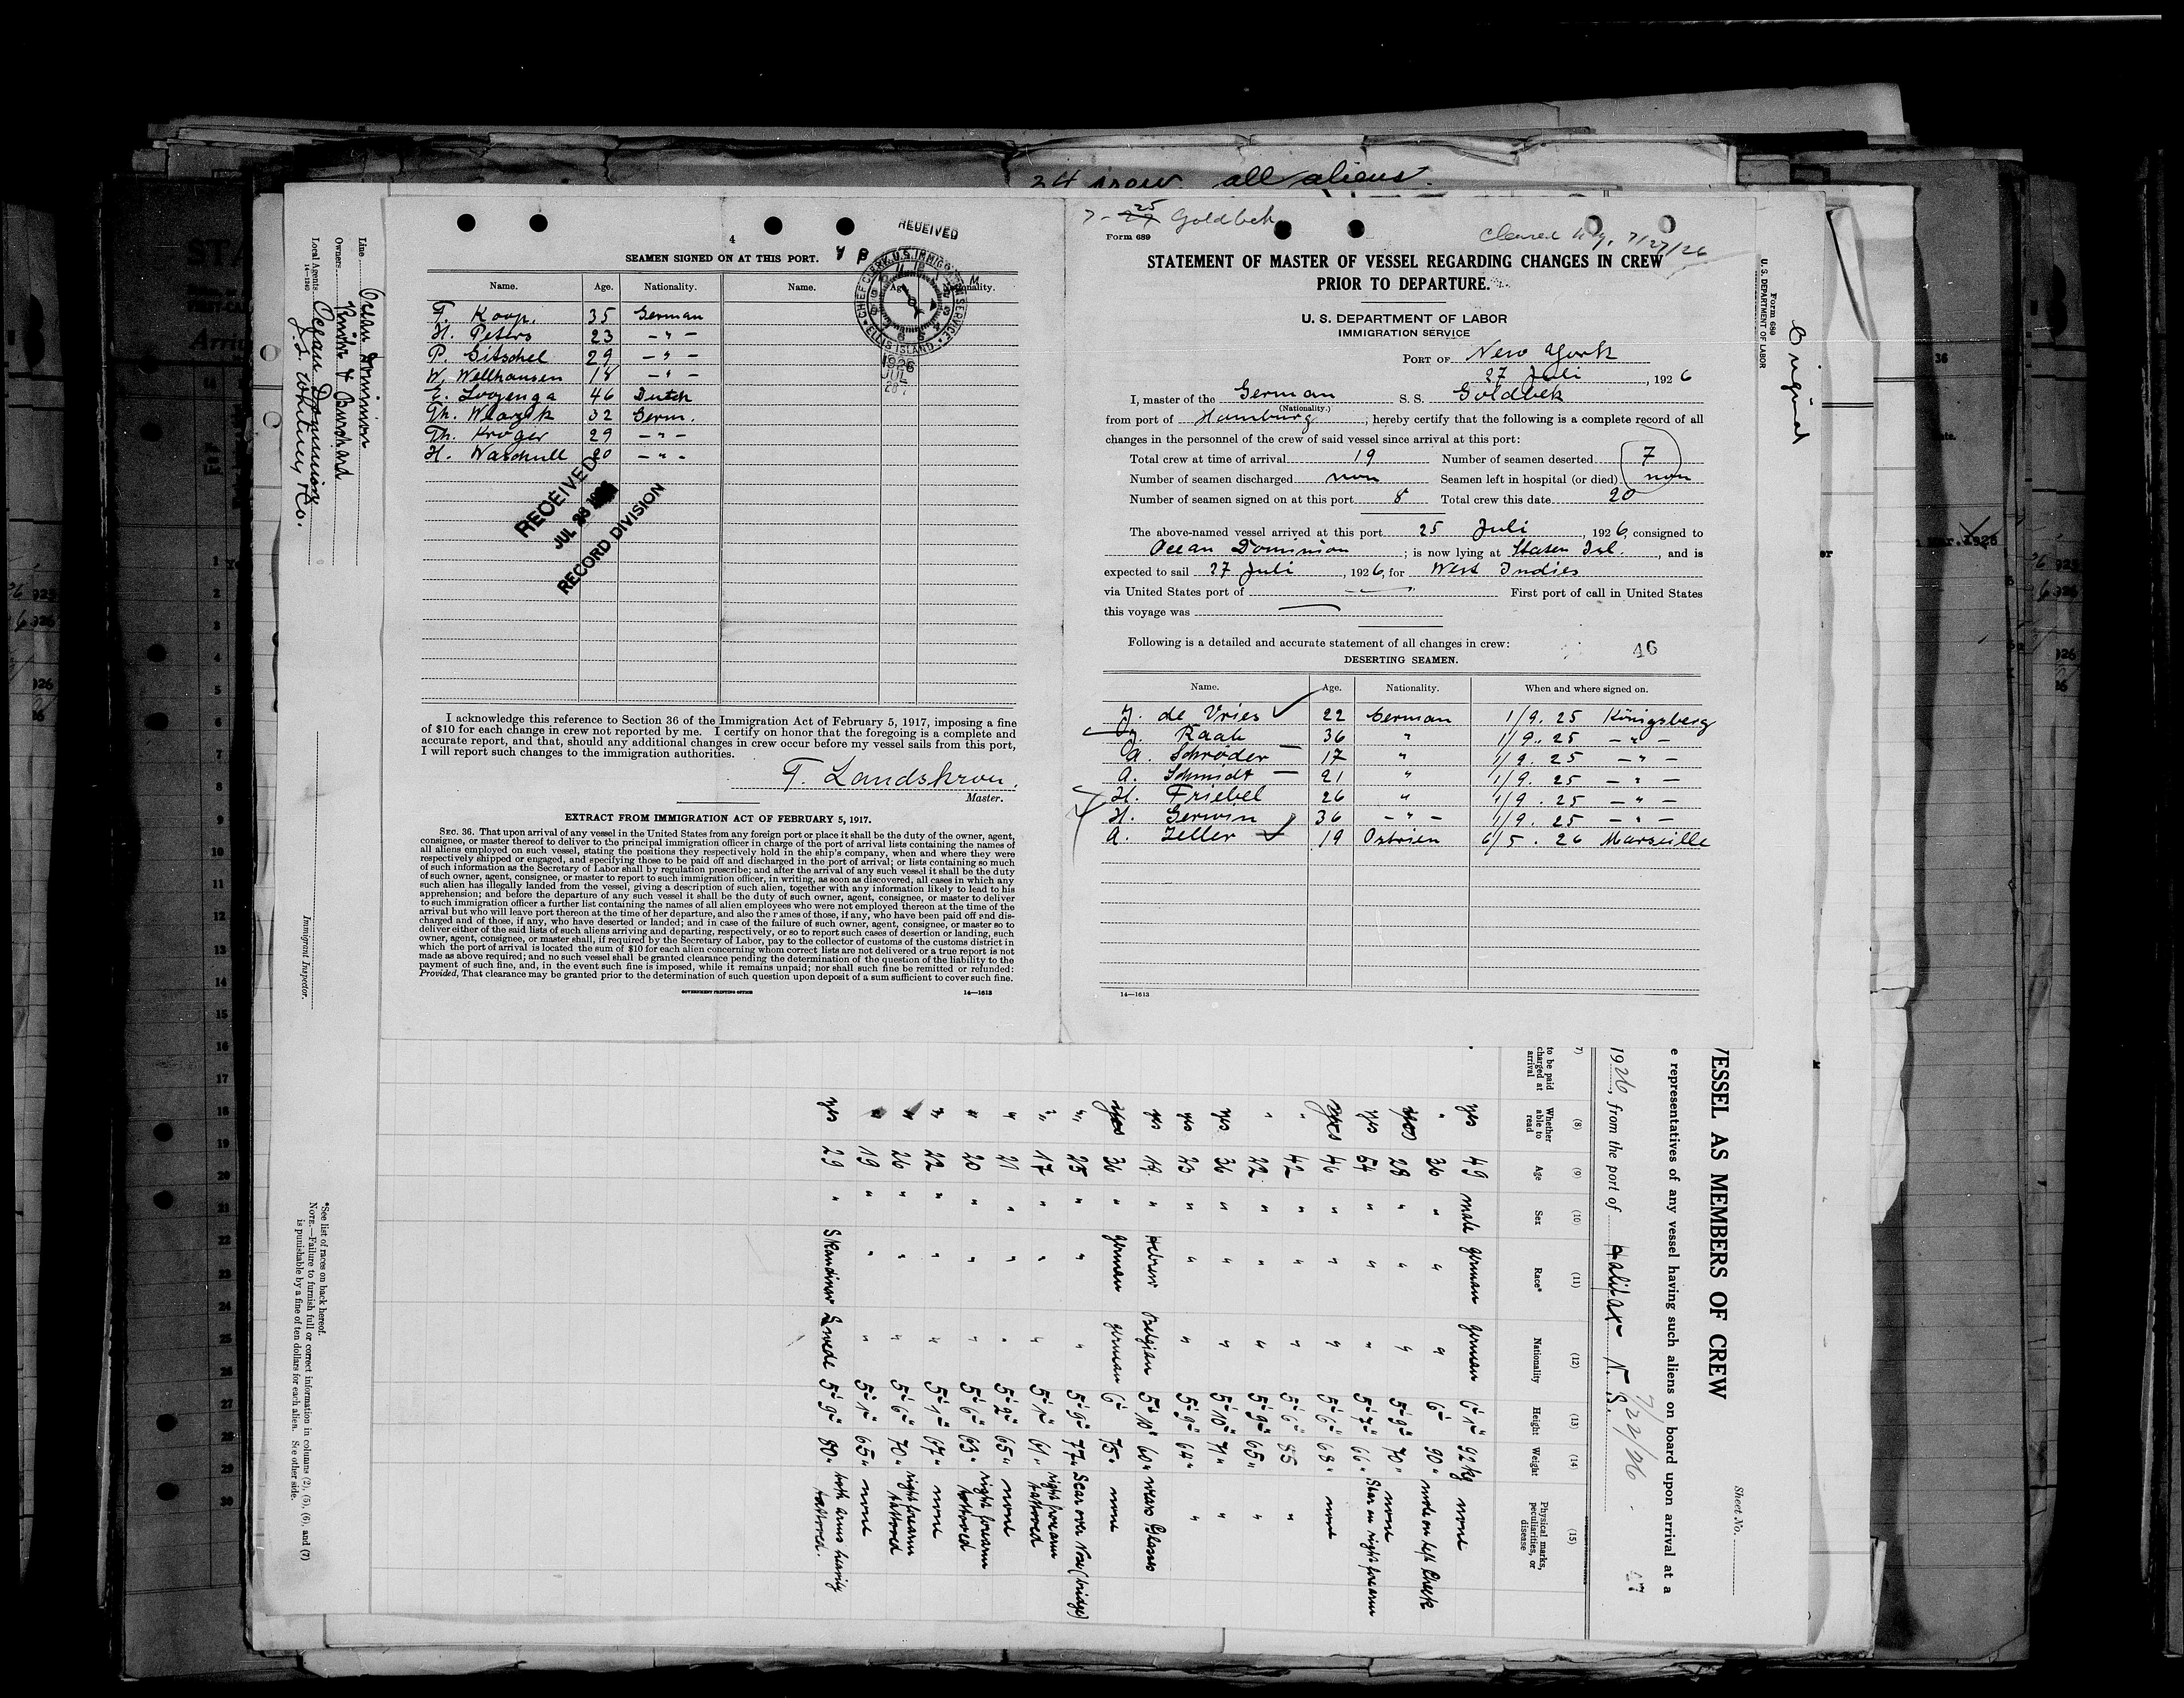 34 crew all aliens.
4
SEAMEN SIGNED ON AT THIS PORT.
RECEIVED
CHIEF CLERK, U.S. IMMIGRATION SERVICE
ELLIS ISLAND
1926
JUL
28
Name. Age. Nationality. Name. Age. Nationality.
F. Koop. 35 German
H. Peters 23 — " —
P. Gitschel 29 — " —
W. Wellhausen 18 — " —
E. Looyenga 46 Dutch
Th. Wlarzik 32 Germ.
Th. Kröger 29 — " —
H. Waschull 20 — " —
RECEIVED
JUL 28 1926
RECORD DIVISION
I acknowledge this reference to Section 36 of the Immigration Act of February 5, 1917, imposing a fine
of $10 for each change in crew not reported by me. I certify on honor that the foregoing is a complete and
accurate report, and that, should any additional changes in crew occur before my vessel sails from this port,
I will report such changes to the immigration authorities.
F. Landskron.
Master.
EXTRACT FROM IMMIGRATION ACT OF FEBRUARY 5, 1917.
SEC. 36. That upon arrival of any vessel in the United States from any foreign port or place it shall be the duty of the owner, agent,
consignee, or master thereof to deliver to the principal immigration officer in charge of the port of arrival lists containing the names of
all aliens employed on such vessel, stating the positions they respectively hold in the ship's company, when and where they were
respectively shipped or engaged, and specifying those to be paid off and discharged in the port of arrival; or lists containing so much
of such information as the Secretary of Labor shall by regulation prescribe; and after the arrival of any such vessel it shall be the duty
of such owner, agent, consignee, or master to report to such immigration officer, in writing, as soon as discovered, all cases in which any
such alien has illegally landed from the vessel, giving a description of such alien, together with any information likely to lead to his
apprehension; and before the departure of any such vessel it shall be the duty of such owner, agent, consignee, or master to deliver
to such immigration officer a further list containing the names of all alien employees who were not employed thereon at the time of the
arrival but who will leave port thereon at the time of her departure, and also the names of those, if any, who have been paid off and dis-
charged and of those, if any, who have deserted or landed; and in case of the failure of such owner, agent, consignee, or master so to
deliver either of the said lists of such aliens arriving and departing, respectively, or so to report such cases of desertion or landing, such
owner, agent, consignee, or master shall, if required by the Secretary of Labor, pay to the collector of customs of the customs district in
which the port of arrival is located the sum of $10 for each alien concerning whom correct lists are not delivered or a true report is not
made as above required; and no such vessel shall be granted clearance pending the determination of the question of the liability to the
payment of such fine, and, in the event such fine is imposed, while it remains unpaid; nor shall such fine be remitted or refunded:
Provided, That clearance may be granted prior to the determination of such question upon deposit of a sum sufficient to cover such fine.
GOVERNMENT PRINTING OFFICE 14—1613
7-25 Goldbek
Form 689
Cleared N.Y. 7/27/26
STATEMENT OF MASTER OF VESSEL REGARDING CHANGES IN CREW
PRIOR TO DEPARTURE.
U. S. DEPARTMENT OF LABOR
IMMIGRATION SERVICE
PORT OF New York
27 Juli, 1926
I, master of the German S. S. Goldbek
(Nationality.)
from port of Hamburg, hereby certify that the following is a complete record of all
changes in the personnel of the crew of said vessel since arrival at this port:
Total crew at time of arrival 19 Number of seamen deserted 7
Number of seamen discharged non Seamen left in hospital (or died) non
Number of seamen signed on at this port 8 Total crew this date 20
The above-named vessel arrived at this port 25 Juli, 1926, consigned to
Ocean Dominion; is now lying at Staten Isl., and is
expected to sail 27 Juli, 1926, for West Indies
via United States port of — First port of call in United States
this voyage was —
Following is a detailed and accurate statement of all changes in crew:
46
DESERTING SEAMEN.
Name. Age. Nationality. When and where signed on.
J. de Vries 22 German 1/9. 25 Königsberg
J. Raab 36 " 1/9. 25 — " —
A. Schröder 17 " 1/9. 25 — " —
A. Schmidt 21 " 1/9. 25 — " —
H. Friebel 26 " 1/9. 25 — " —
H. Gerwin 36 — " — 1/9. 25 — " —
A. Zeller 19 Ostrien 6/5. 26 Marseille
14—1613
Form 689
U. S. DEPARTMENT OF LABOR
Original
Line Ocean Dominion
Owners Knöhr & Burchard
Local Agents Ocean Dominion
J. S. Whitney & Co.
14—1240
Immigrant Inspector.
*See list of races on back hereof.
NOTE.—Failure to furnish full or correct information in columns (2), (5), (6), and (7)
is punishable by a fine of ten dollars for each alien. See other side.
Sheet No.
VESSEL AS MEMBERS OF CREW
e representatives of any vessel having such aliens on board upon arrival at a
1926, from the port of Halifax N. S. 7/22/26
(8) (9) (10) (11) (12) (13) (14) (15)
to be paid charged at arrival
Whether able to read Age Sex Race* Nationality Height Weight Physical marks, peculiarities, or disease
yes 49 male german german 6' 1" 92 kg none
" 36 " " " 6' 90 " mole on left Cheek
yes 28 " " " 5' 9" 70 " none
yes 54 " " " 5' 7" 66 " Star on right forearm
yes 46 " " " 5' 6" 68 " none
" 42 " " " 5' 6" 85 "
" 22 " " " 5' 9" 65 " "
yes 36 " " " 5' 10" 71 " "
yes 23 " " " 5' 9" 64 " "
yes 19 " Hebrew Belgian 5' 10" 60 " wears Glasses
yes 36 " german german 6' 75 " none
" 25 " " " 5' 9" 77 " Scar over Nose (bridge)
" 17 " " " 5' 1" 61 " right forearm tattooed
" 21 " " " 5' 2" 65 " none
" 20 " " " 5' 6" 63 " right forearm tattooed
" 22 " " " 5' 1" 67 " none
" 26 " " " 5' 6" 70 " right forearm tattooed
" 19 " " " 5' 1" 65 " none
yes 29 " Skandinav Swede 5' 9" 80 " both arms heavily tattooed.